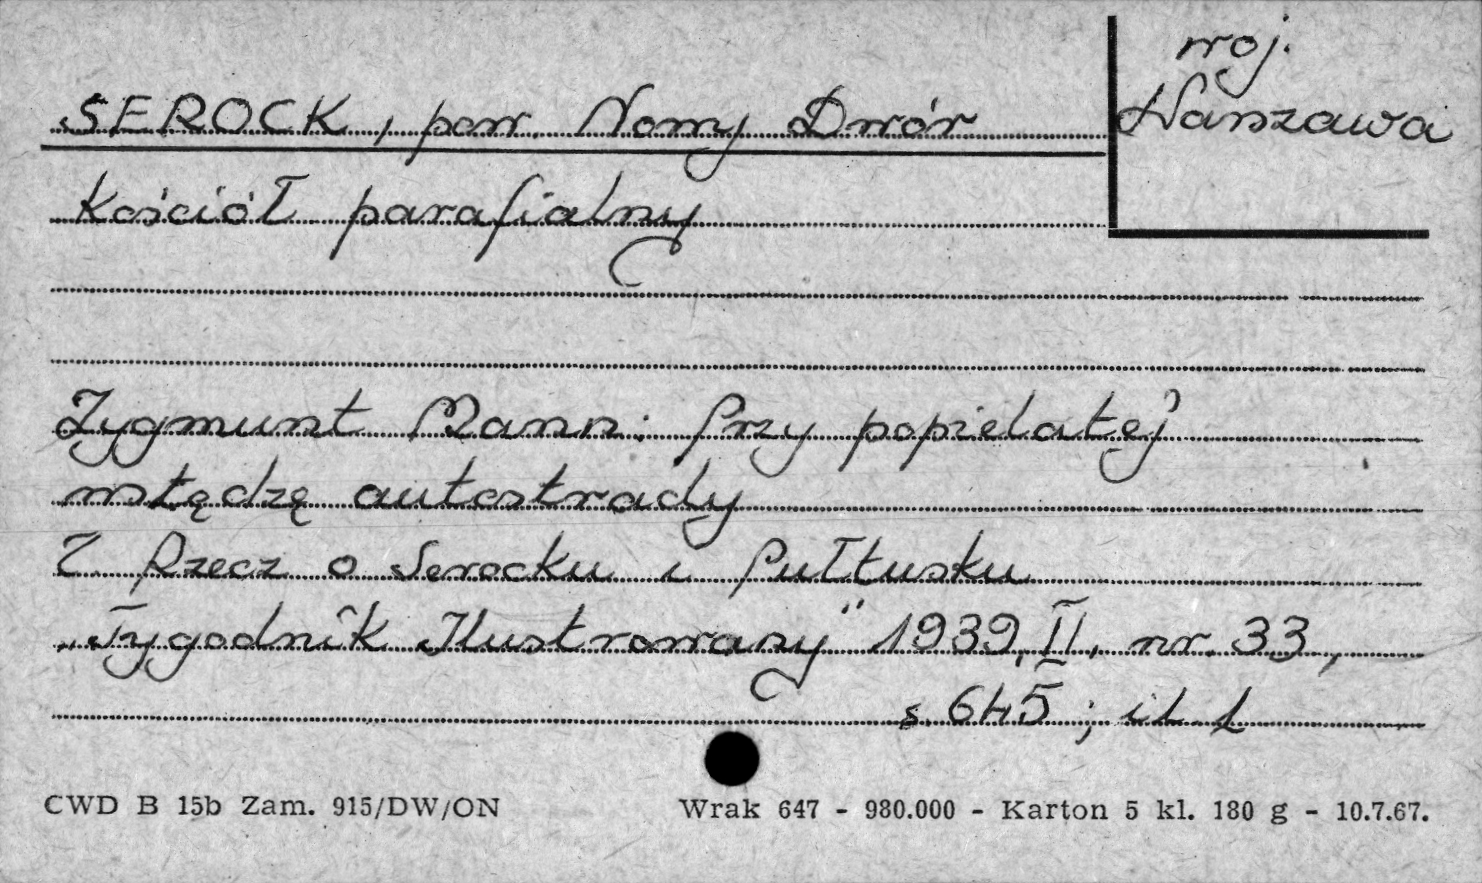 woj.
Warszawa
SEROCK, pow. Nowy Dwór
Kościół parafialny
Zygmunt Mann: Przy popielatej
wstędze autostrady
Z. Rzecz o Serocku i Pułtusku
„Tygodnik Ilustrowany" 1939, II, nr. 33,
s. 645; il. 1
CWD B 15b Zam. 915/DW/ON Wrak 647 - 980.000 - Karton 5 kl. 180 g - 10.7.67.